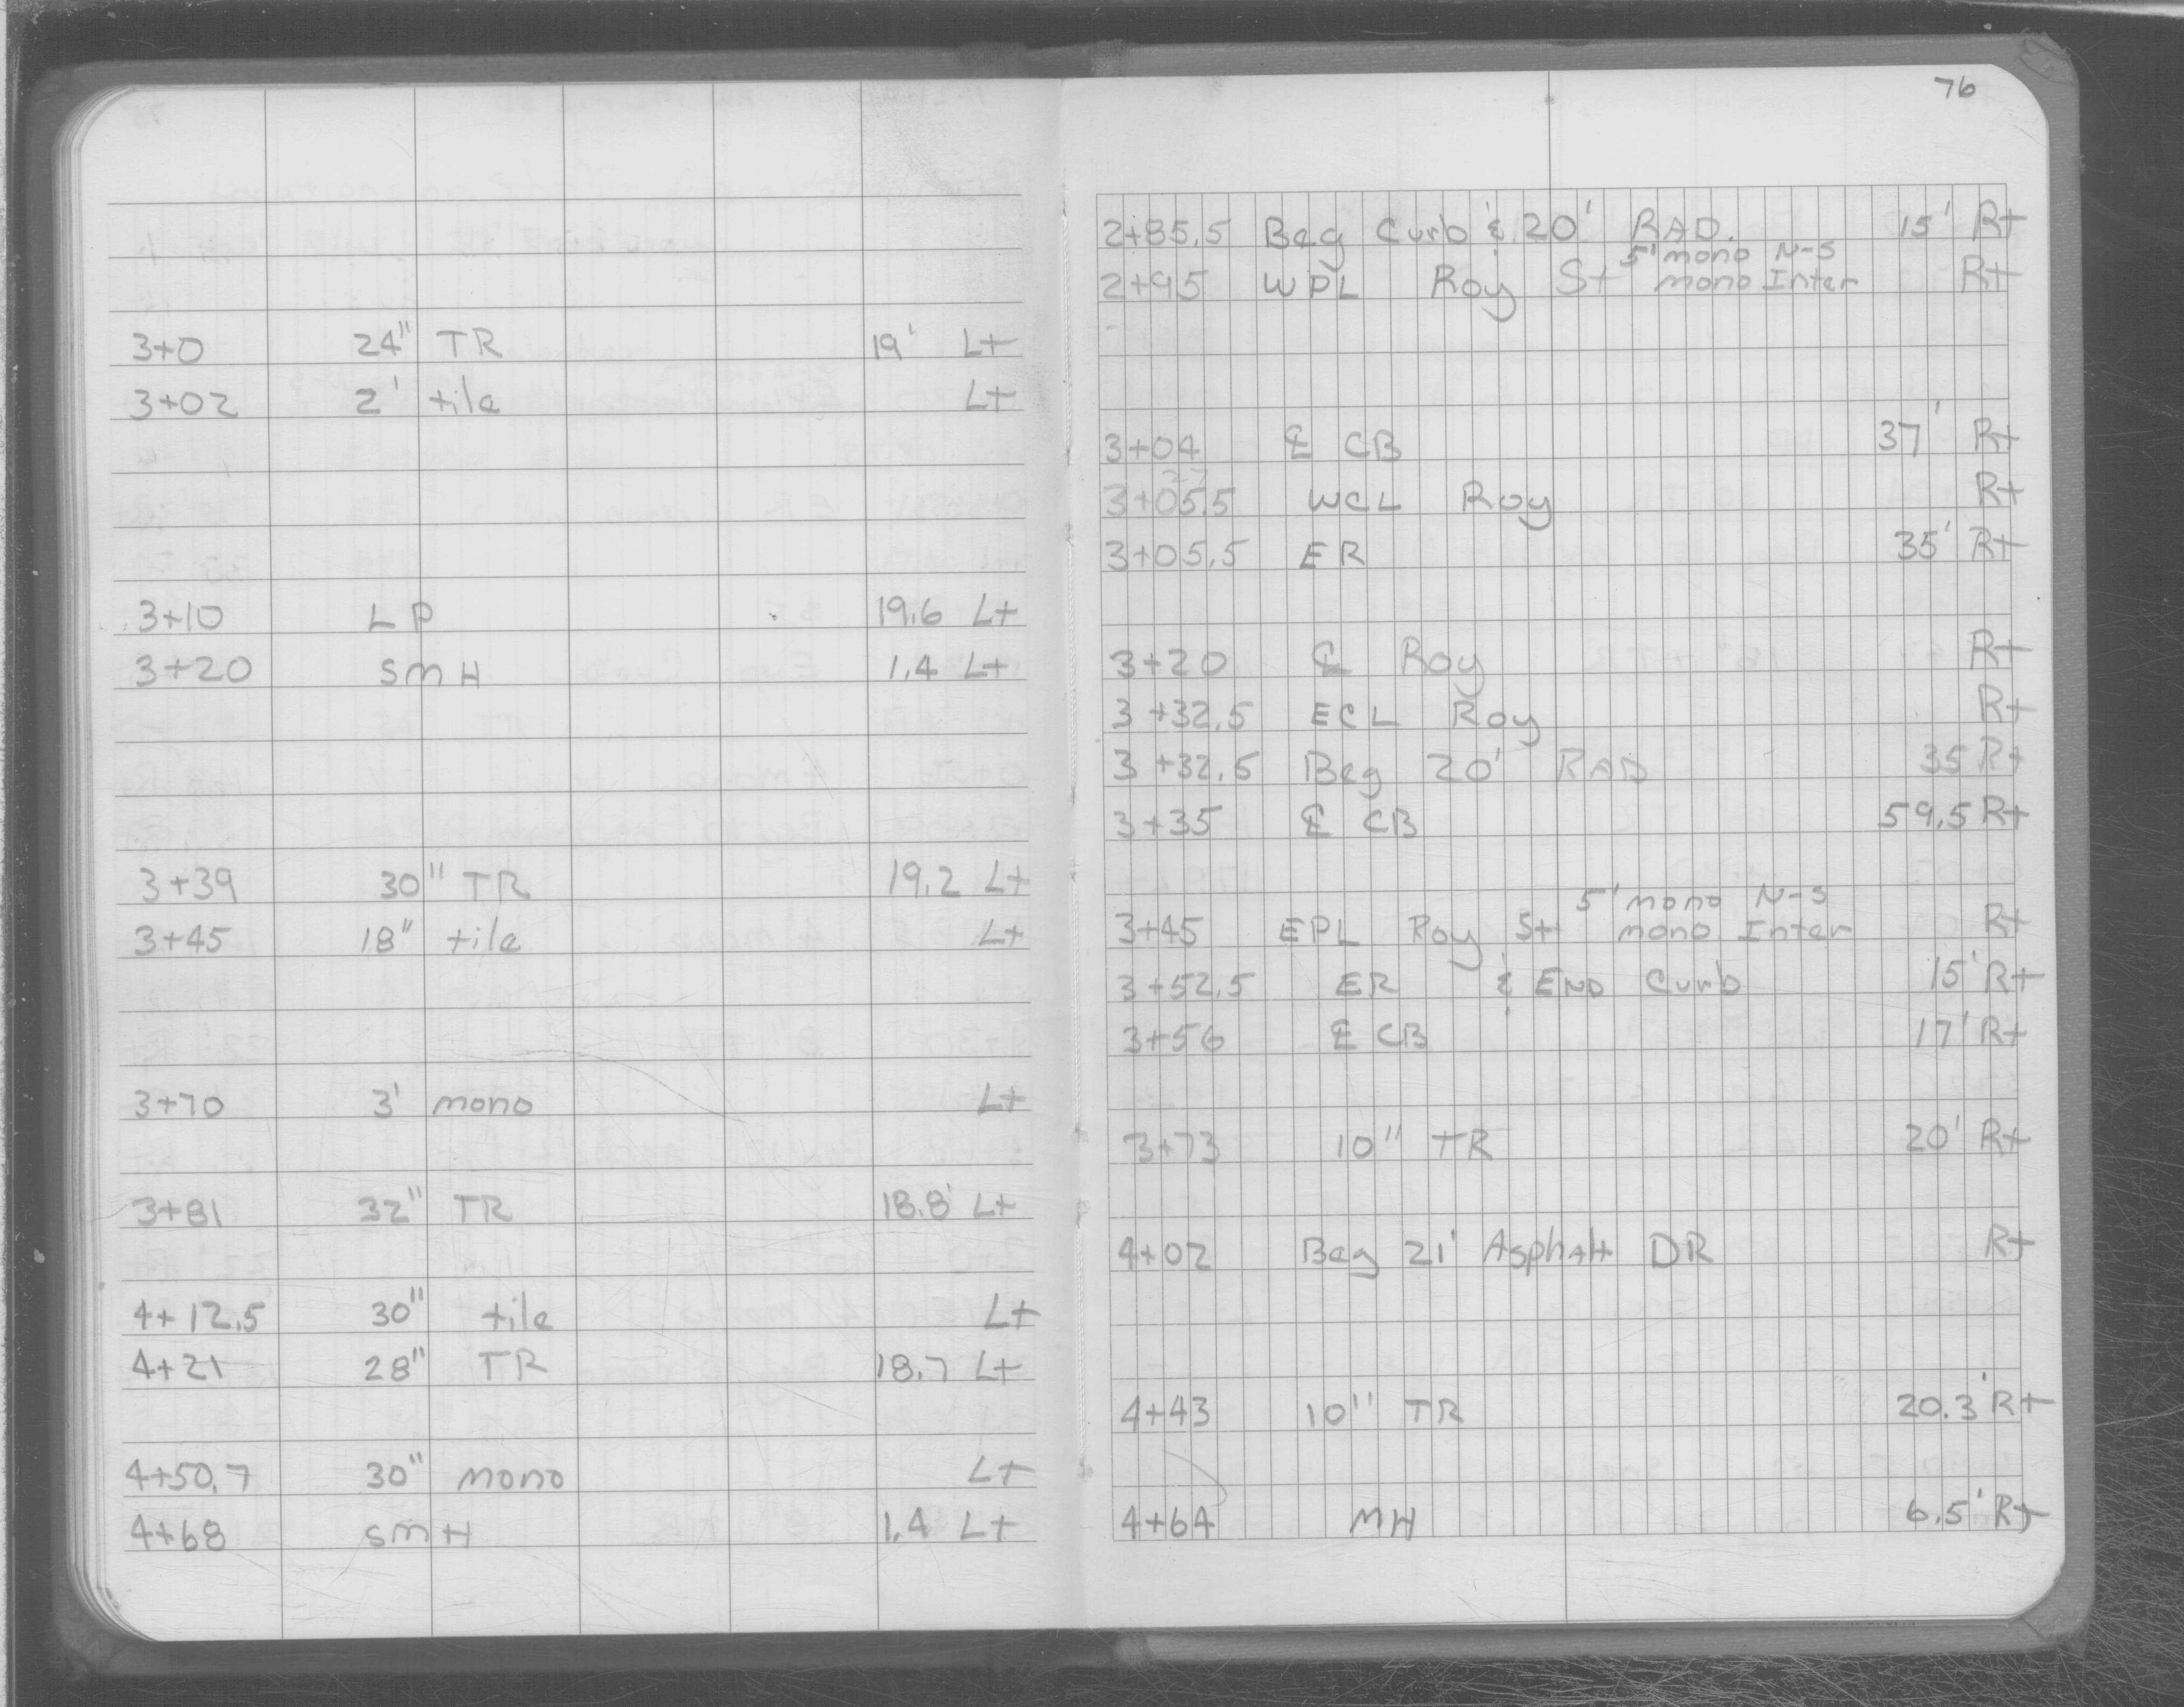 3+0 24" TR 19' Lt
3+02 2' tile Lt
3+10 LP 19.6 Lt
3+20 SMH 1.4 Lt
3+39 30" TR 19.2 Lt
3+45 18" tile Lt
3+70 3' mono Lt
3+81 32" TR 18.8' Lt
4+12.5 30" tile Lt
4+21 28" TR 18.7 Lt
4+50.7 30" mono Lt
4+68 SMH 1.4 Lt
76
2+85.5 Beg Curb & 20' RAD. 15' Rt
5' mono N-S
2+95 WPL Roy St mono Inter Rt
3+04 ℄ CB 37' Rt
3+05.5 WCL Roy Rt
3+05.5 ER 35' Rt
3+20 ℄ Roy Rt
3+32.5 ECL Roy Rt
3+32.5 Beg 20' RAD 35 Rt
3+35 ℄ CB 59.5 Rt
5' mono N-S
3+45 EPL Roy St mono Inter Rt
3+52.5 ER & END Curb 15' Rt
3+56 ℄ CB 17' Rt
3+73 10" TR 20' Rt
4+02 Beg 21' Asphalt DR Rt
4+43 10" TR 20.3' Rt
4+64 MH 6.5' Rt